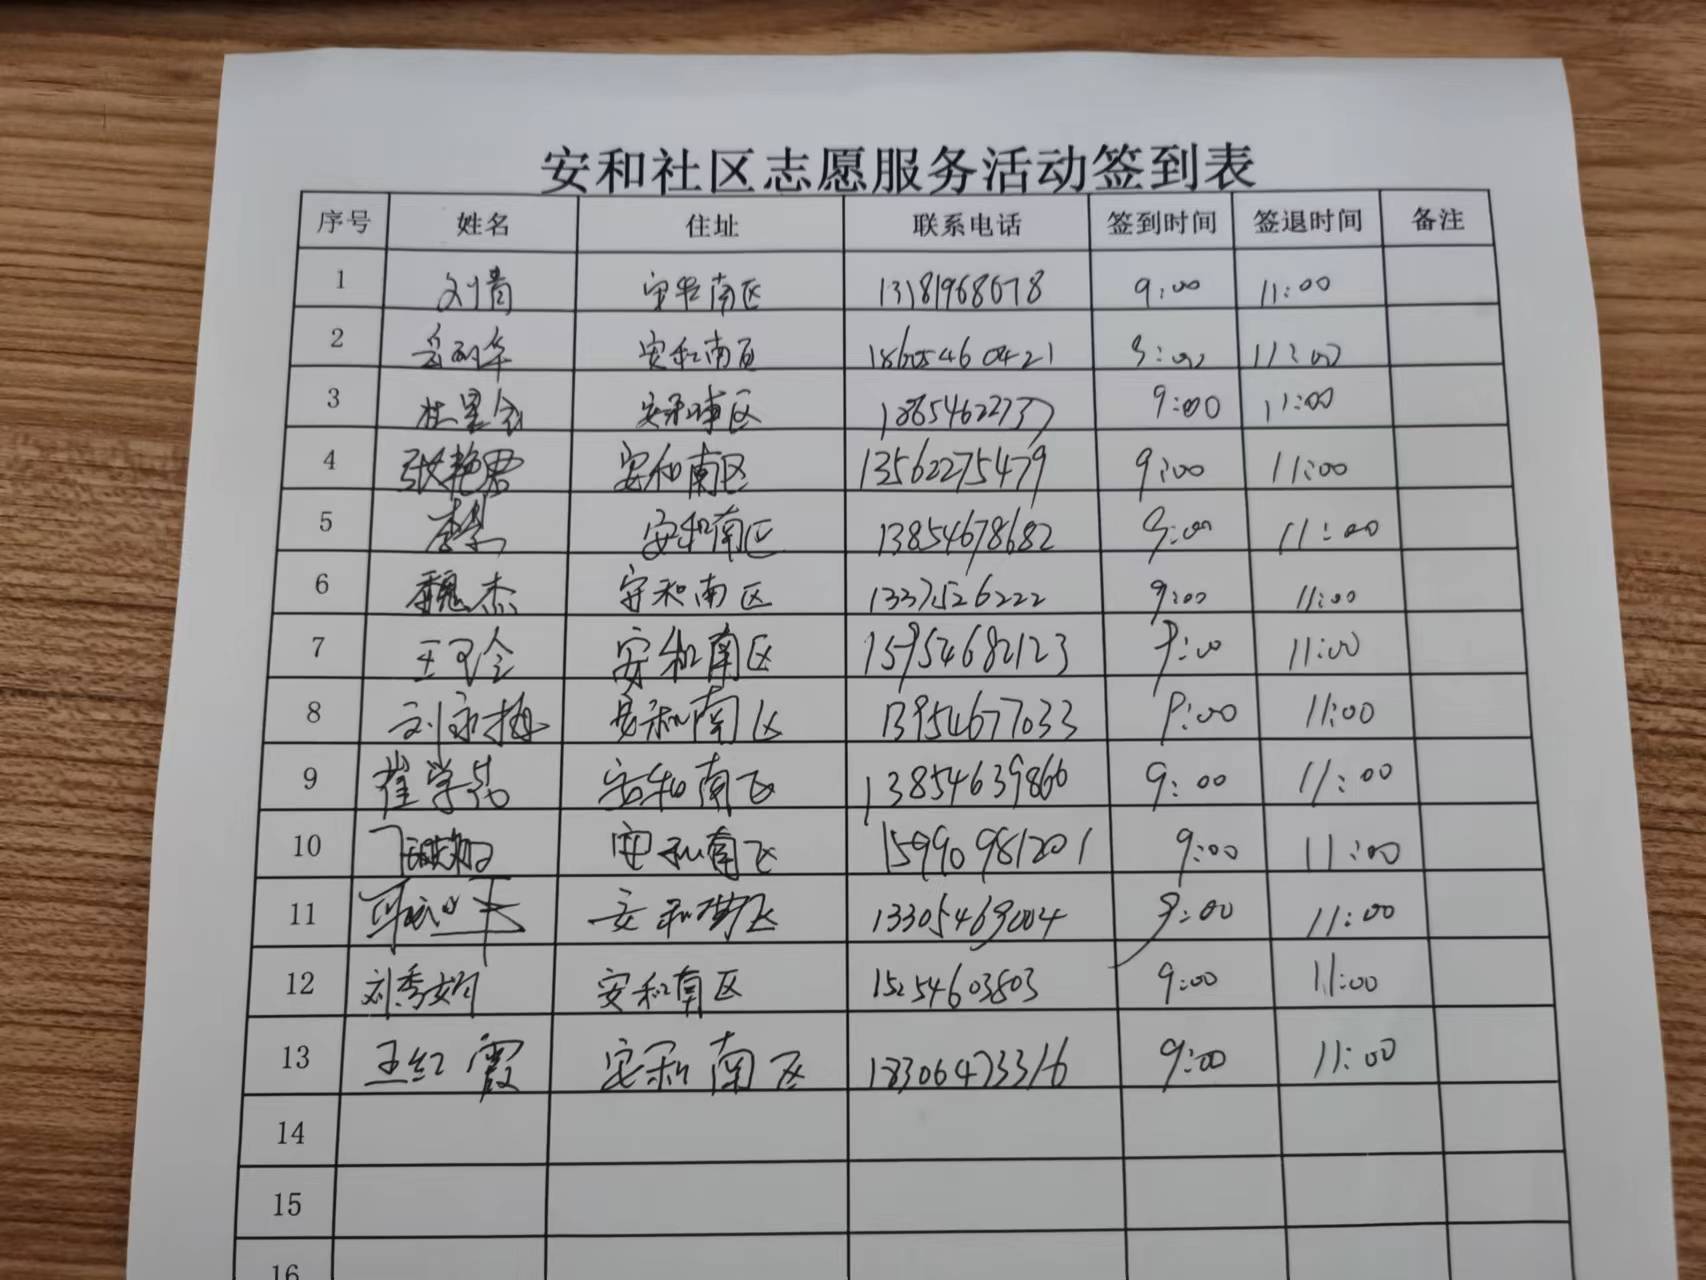 安和社区志愿服务活动签到表
序号 姓名 住址 联系电话 签到时间 签退时间 备注
1 刘青 安和南区 13181968678 9:00 11:00
2 安和南区 18605460421 9:00 11:00
3 安和南区 1865462273 9:00 11:00
4 张艳君 安和南区 13562275479 9:00 11:00
5 安和南区 13854678682 9:00 11:00
6 魏杰 安和南区 13375526222 9:00 11:00
7 安和南区 15954682123 9:00 11:00
8 刘永梅 安和南区 13954677033 9:00 11:00
9 崔学 安和南区 13854639866 9:00 11:00
10 安和南区 15990981201 9:00 11:00
11 安和南区 13305469004 9:00 11:00
12 刘秀娟 安和南区 15254603803 9:00 11:00
13 王红霞 安和南区 18306473316 9:00 11:00
14
15
16